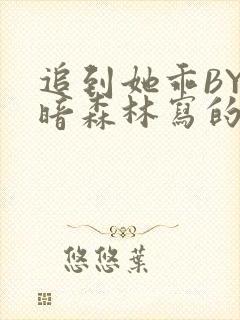 追到她乖BY
暗森林寫的
悠悠葉